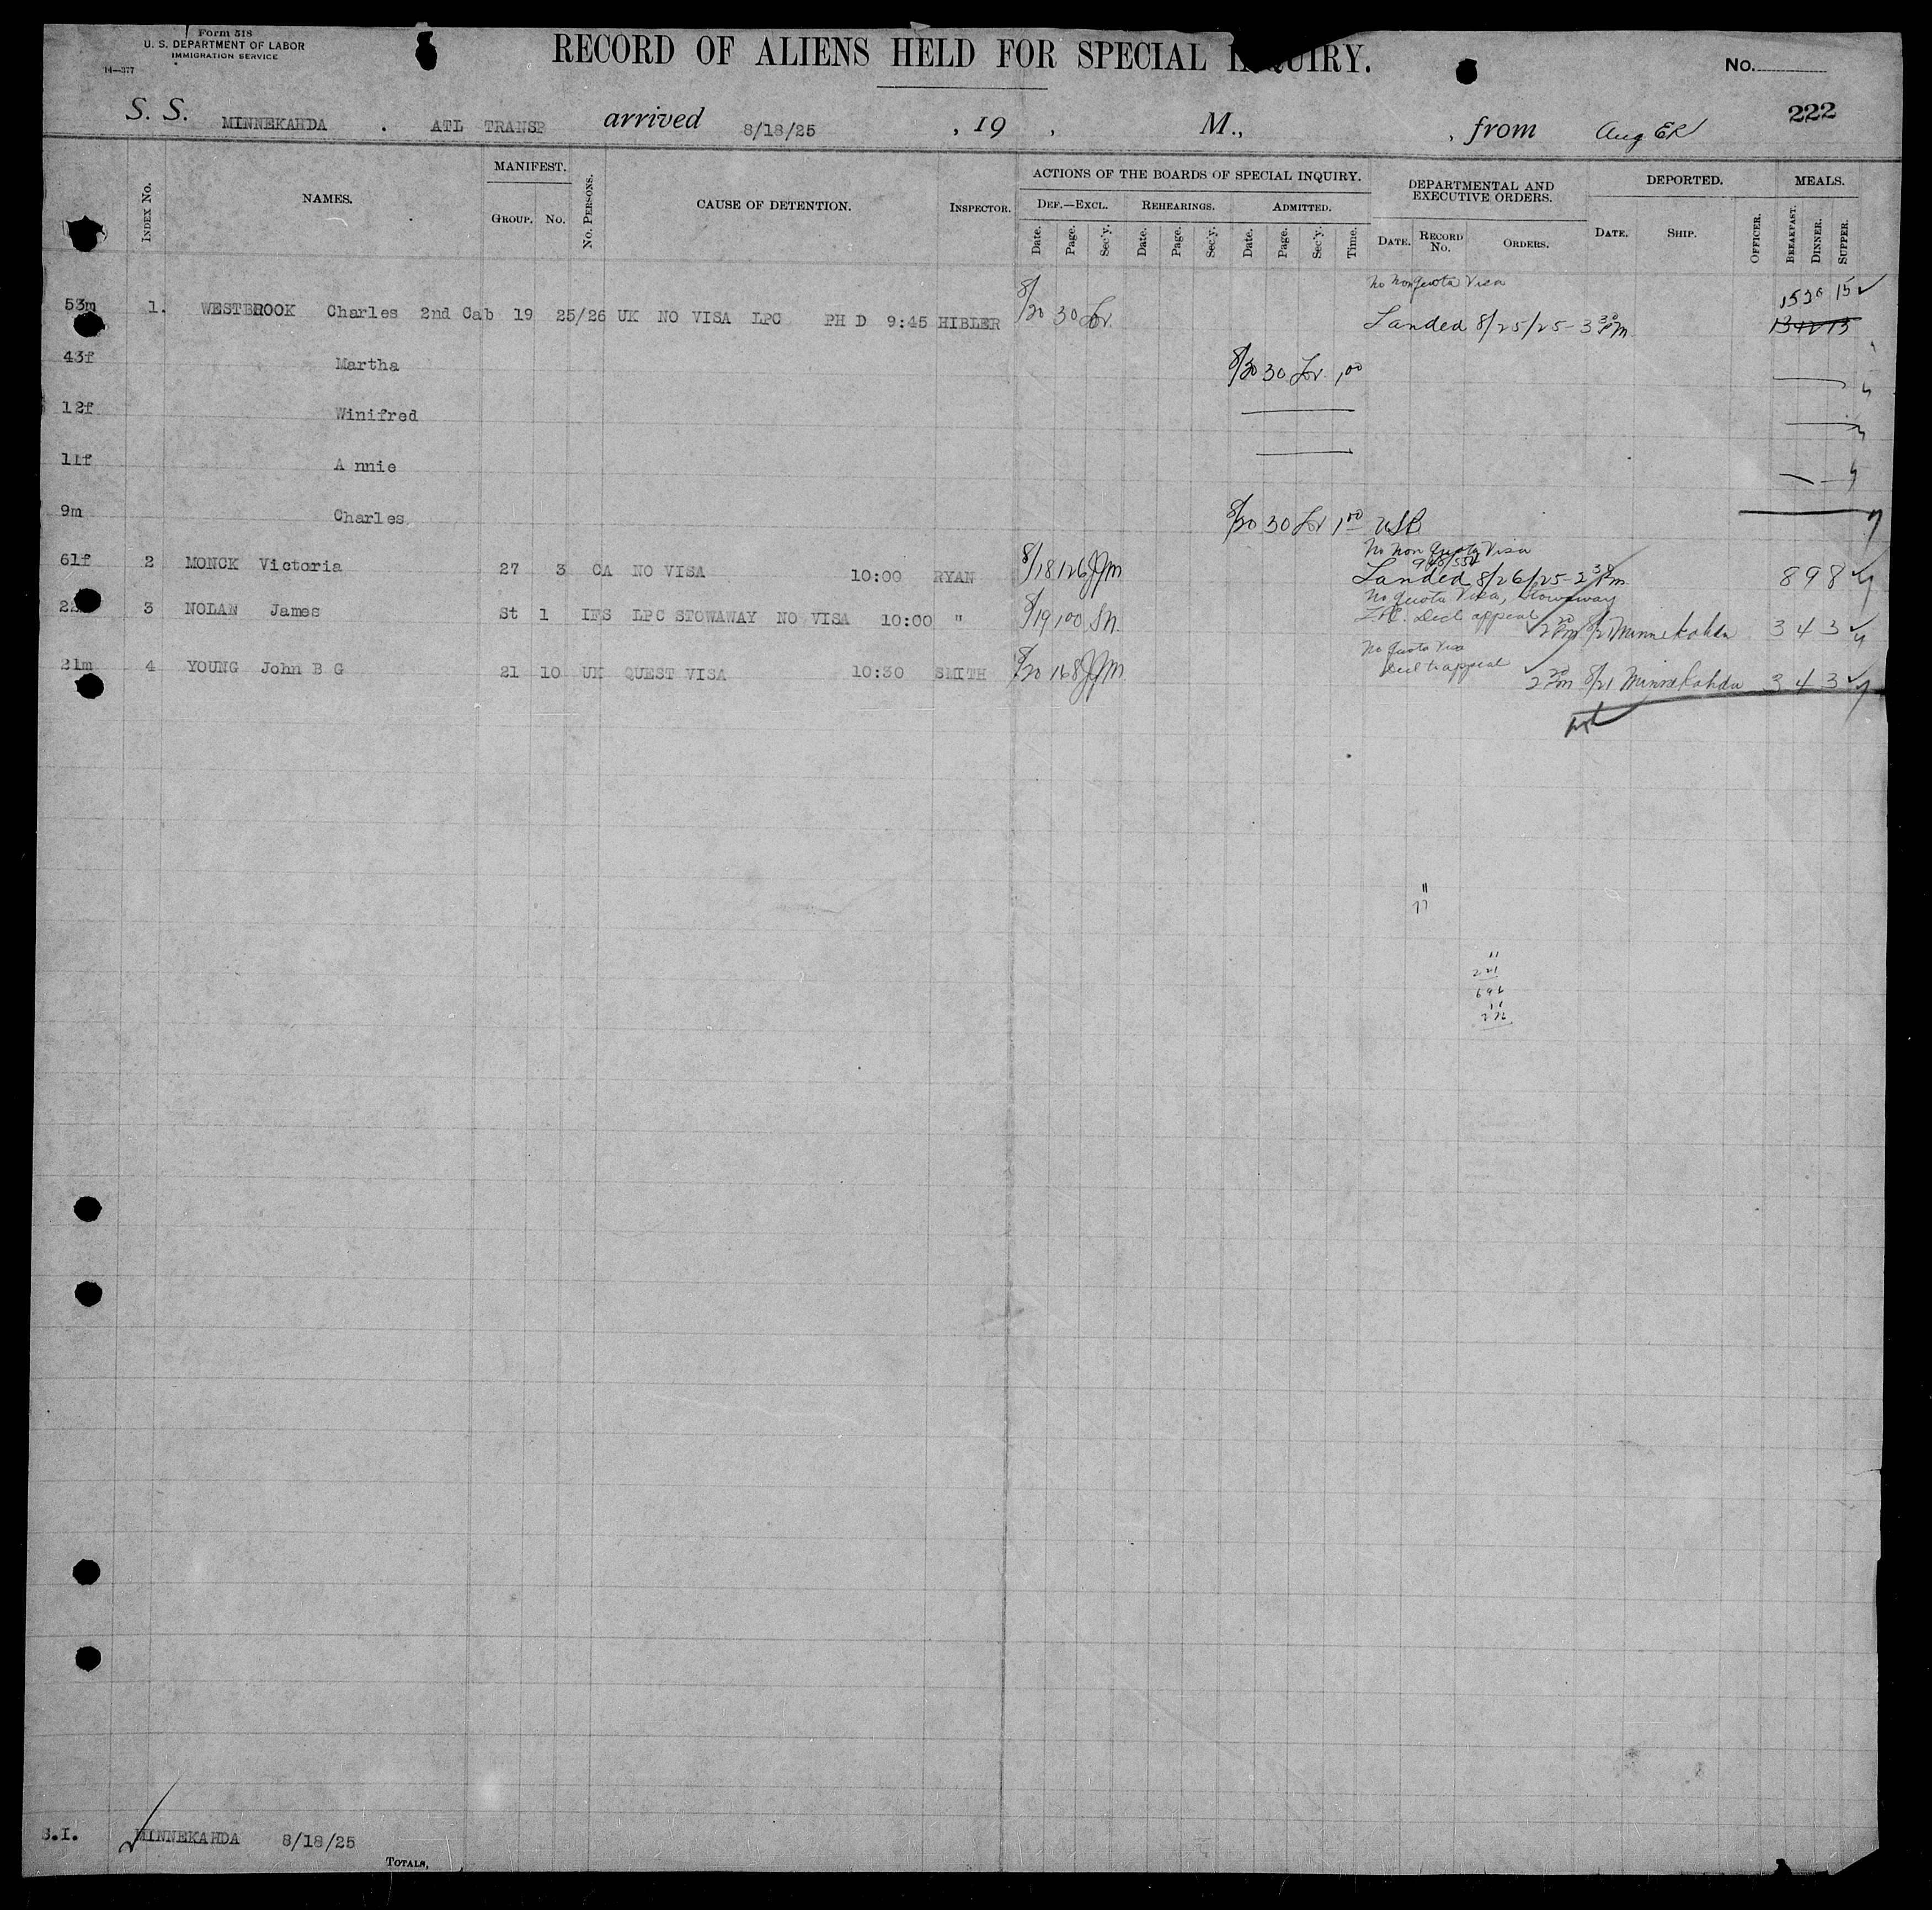 Form 518
U. S. DEPARTMENT OF LABOR
IMMIGRATION SERVICE
14—377
RECORD OF ALIENS HELD FOR SPECIAL INQUIRY.
No.
222
S. S. MINNEKAHDA . ATL TRANSP arrived 8/18/25 , 19 , M., , from Aug ER
INDEX No.
NAMES.
MANIFEST.
GROUP. No.
No. PERSONS.
CAUSE OF DETENTION.
INSPECTOR.
ACTIONS OF THE BOARDS OF SPECIAL INQUIRY.
DEF.—EXCL. REHEARINGS. ADMITTED.
Date. Page. Sec'y. Date. Page. Sec'y. Date. Page. Sec'y. Time.
DEPARTMENTAL AND EXECUTIVE ORDERS.
DATE. RECORD No. ORDERS.
DEPORTED.
DATE. SHIP. OFFICER.
MEALS.
BREAKFAST. DINNER. SUPPER.
No Non quota Visa
53m 1. WESTBROOK Charles 2nd Cab 19 25/26 UK NO VISA LPC PH D 9:45 HIBLER 8/20 30 Lov. Landed 8/25/25 - 3 30 PM 15 15 13 12 13
43f Martha 8/20 30 Lov. 1,00
12f Winifred
11f Annie
9m Charles 8/20 30 Lov 1 00 USB
No Non Quota Visa
61f 2 MONCK Victoria 27 3 CA NO VISA 10:00 RYAN 8/18 126 JJM Landed 8/26/25 - 2 30 PM 8 9 8
No quota Visa, Stowaway
22 3 NOLAN James St 1 IFS LPC STOWAWAY NO VISA 10:00 " 8/19 100 SN. Decl appeal 2 20 PM 8/21 Minnekahda 3 4 3
No Quota Visa
21m 4 YOUNG John B G 21 10 UK QUEST VISA 10:30 SMITH 8/20 168 JJM Decl to appeal 2 20 PM 8/21 Minnekahda 3 4 3
11
77
11
S.I. MINNEKAHDA 8/18/25
TOTALS,